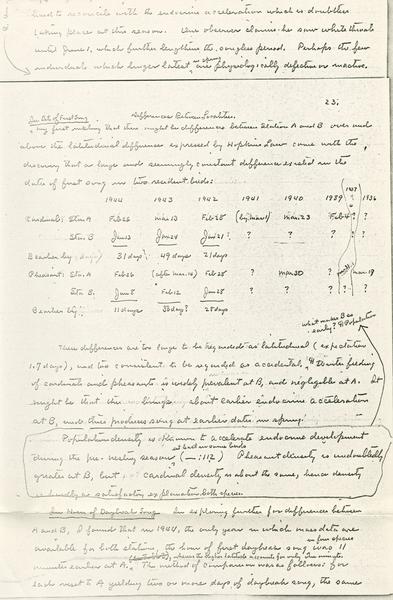 tired to associate with the endocrine acceleration which is doubtless
taking place at this season. One observer claims he saw whitethroats
until June 1, which further lengthens the songless period. Perhaps the few
individuals which linger latest in spring are physiologically defective or inactive.
23.
Differences Between Localities.
In Date of First Song
My first inkling that there might be differences between Station A and B over and
above the latitudinal differences expressed by Hopkins Law came with the
discovery that a large and seemingly constant difference existed in the
dates of first song in two resident birds:
1944 1943 1942 1941 1940 1939 1937 1936
Cardinal: Stn. A Feb 26 Mar 13 Feb 28 (by Mar 1) Mar. 23 Feb 4 ? ?
Stn. B Jan 13 Jan 24 Jan 21? ? ? ? ?
B earlier by 31 days? 49 days 21 days
Pheasant: Stn. A Feb 26 (after Mar. 14) Feb 28 ? Mar 30 ? Mar. 19
Stn. B Feb 12 Jan 28 ? ? ? ?
B earlier by 11 days 30 day? 28 days
what makes B so early? Population
These differences are too large to be regarded as latitudinal (expectation
1.7 days), and too consistent to be regarded as accidental. Winter feeding
of cardinals and pheasants is widely prevalent at B, and negligible at A. It
might be that this brings about earlier endocrine acceleration
at B, and thus produces song at earlier dates in spring.
Population density is known to accelerate endocrine development
at least in some birds
during the pre-nesting season (—:112) Pheasant density is undoubtedly
greater at B, but cardinal density is about the same; hence density
is hardly a satisfactory explanation both species.
In Hour of Daybreak Song In exploring further for differences between
A and B, I found that in 1944, the only year in which mass data are
in four species
available for both stations, the hour of first daybreak song was 11
minutes earlier at A. The method of comparison was as follows: for
each visit to A yielding two or more days of daybreak song, the same